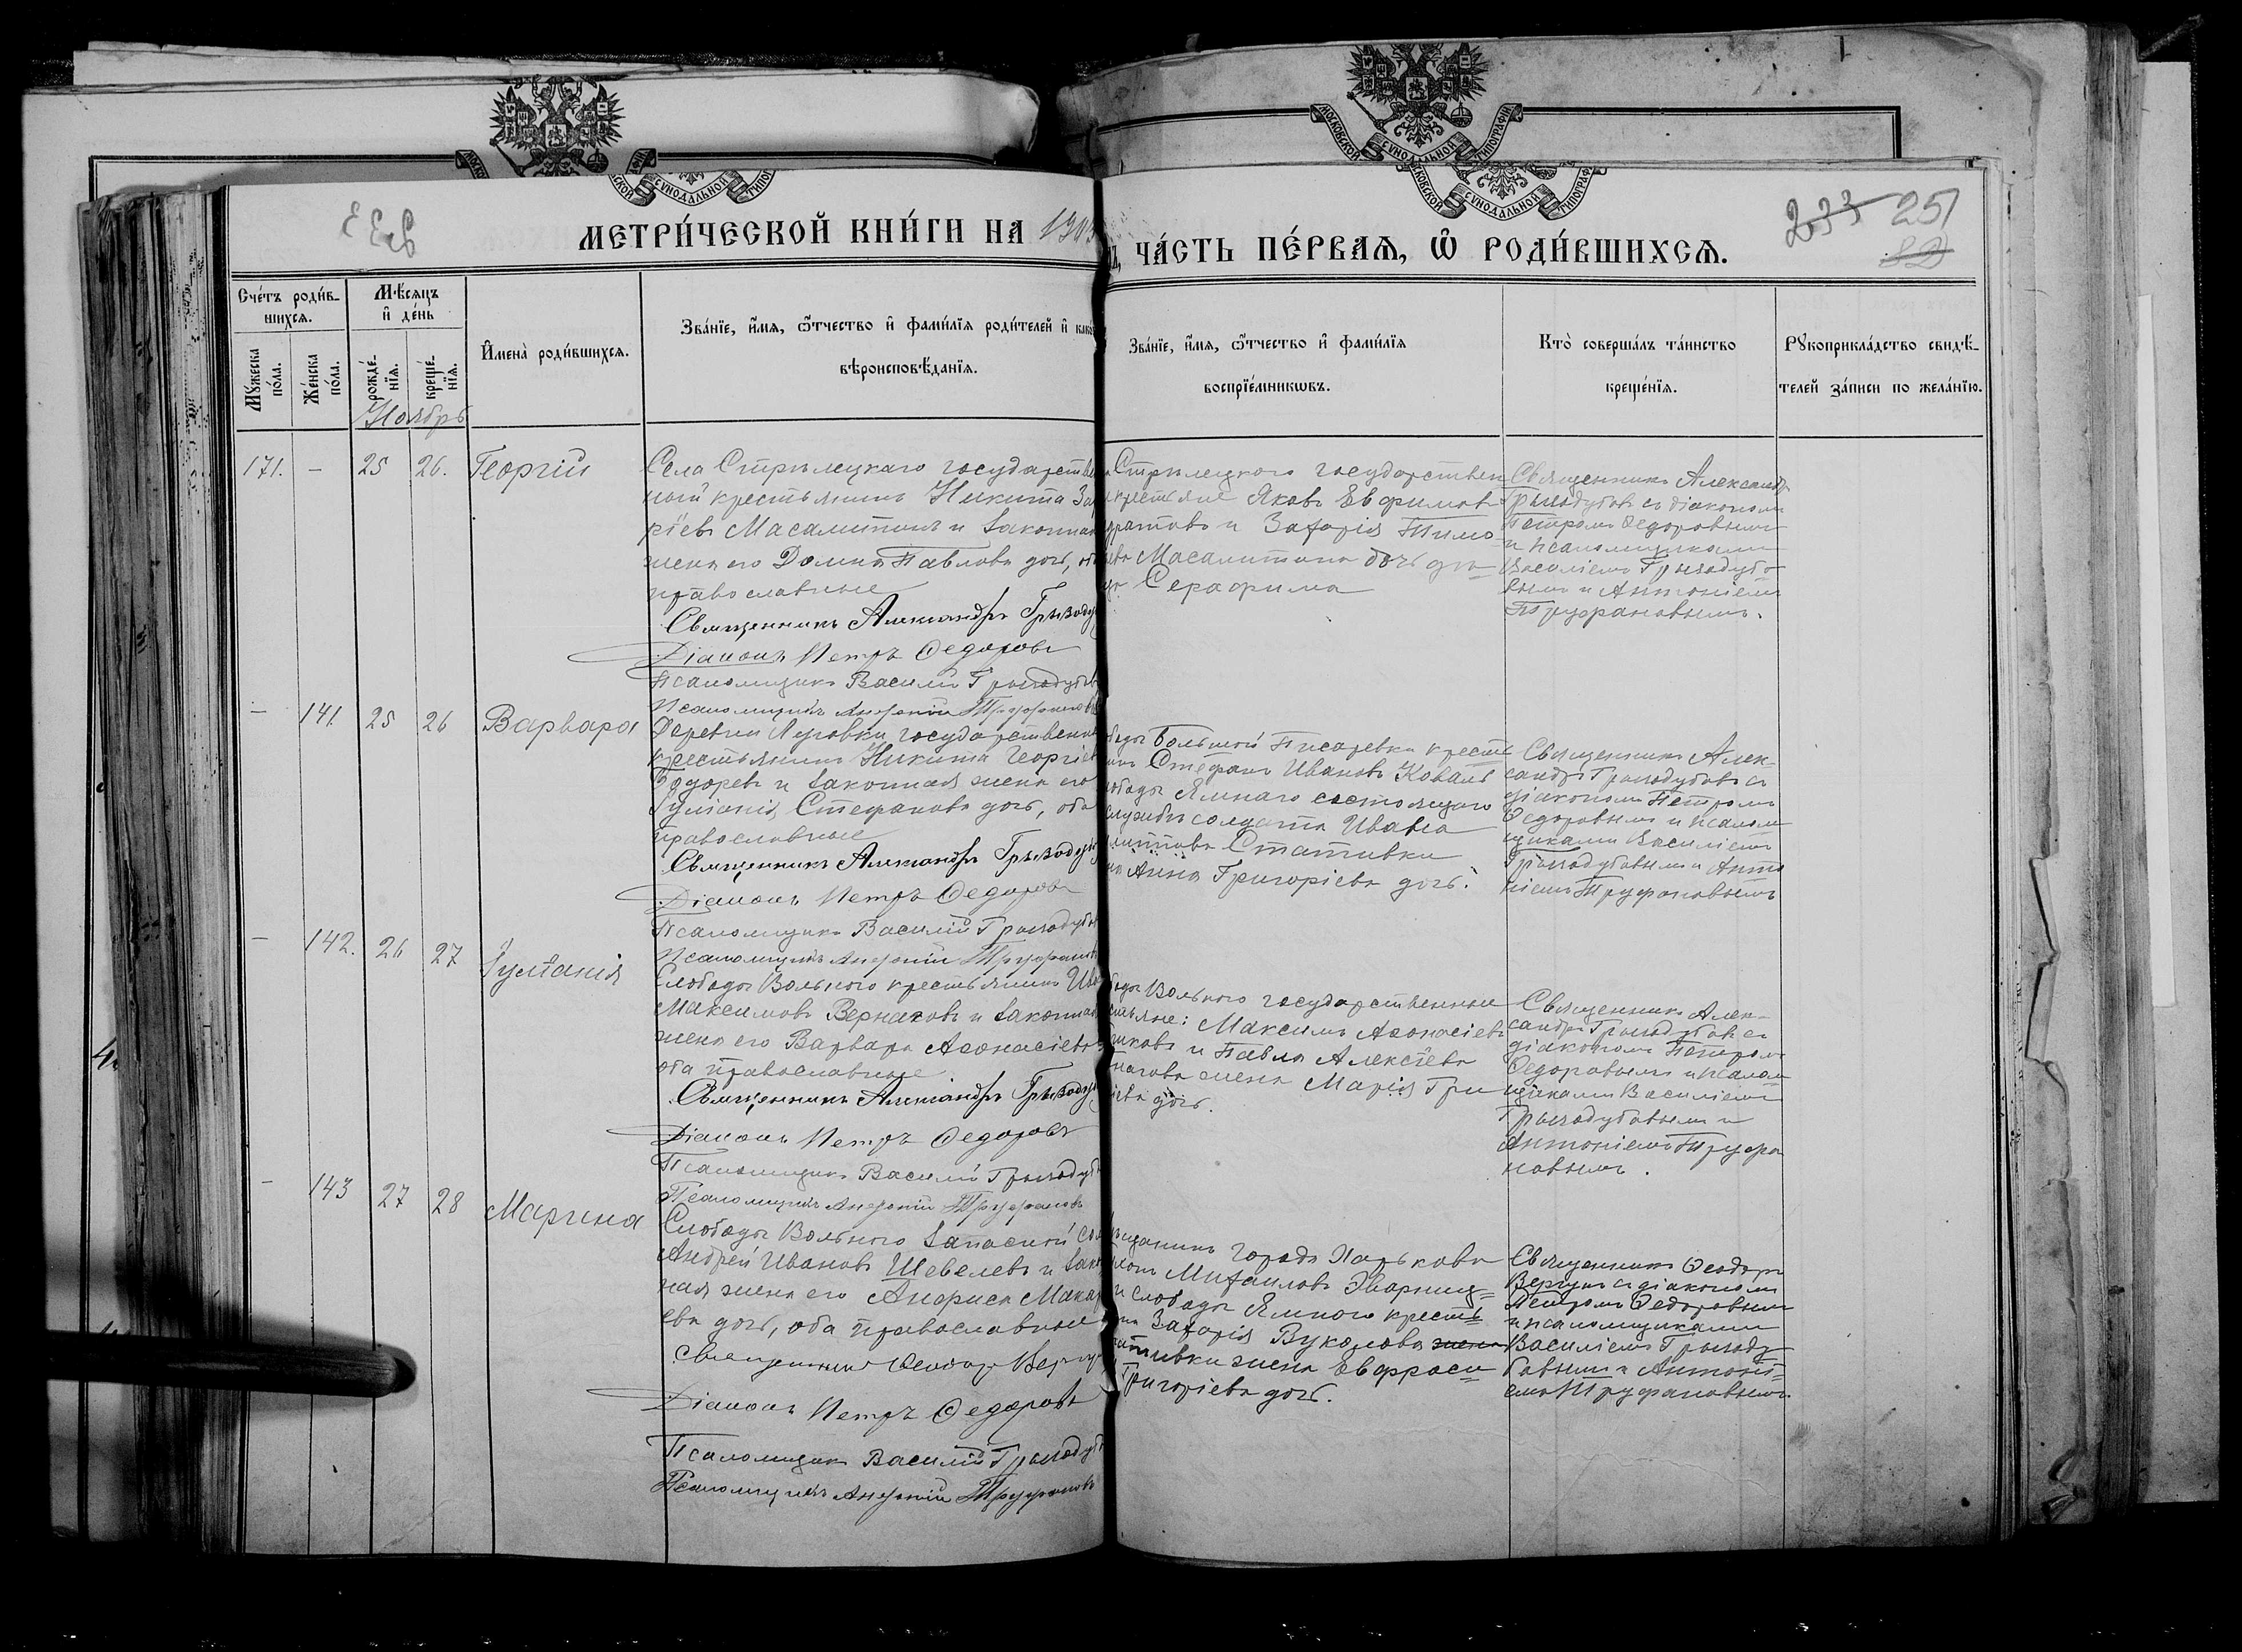 МОСКОВСКОЙ СУНОДАЛЬНОЙ ТИПОГРАФІИ
МЕТРИ́ЧЕСКОЙ КНИ́ГИ НА 1903
ЧА́СТЬ ПЕ́РВАЯ, Ѿ РОДИ́ВШИХСЯ.
233 251
Сче́тъ роди́в-
шихся.
Мѣ́сяцъ
и҆ де́нь
Мꙋ́жеска
по́ла.
Же́нска
по́ла.
рожде́-
нїя.
креще́-
нїя.
И҆мена̀ роди́вшихся.
Зва́нїе, и҆́мя, ѻ҆́тчество и҆ фами́лїя роди́телей и҆ како
вѣроисповѣ́данїя.
Зва́нїе, и҆́мя, ѻ҆́тчество и҆ фами́лїя
воспрїе́мникѡвъ.
Кто̀ соверша́лъ та́инство
креще́нїя.
Рꙋкоприкла́дство свидѣ́-
телей за́писи по жела́нїю.
Ноябрь
171. – 25 26. Георгій
Села Стрѣлецкаго государствен
ный крестьянинъ Никита За
ріевъ Масалитинъ и законная
жена его Домна Павлова дочь, оба
православные
Священникъ Александръ Грызоду
Діаконъ Петръ Ѳедоровъ
Псаломщикъ Василій Грызодубов
Псаломщикъ Антоній Труфановъ
Стрѣлецкого государствен
крестьяне Яковъ Евфимовъ
и Захарія Тимо-
Масалитина дочь дѣ-
Серафима
Священникъ Александръ
Грызодубовъ съ діакономъ
Петромъ Ѳедоровымъ
и псаломщиками
Василіемъ Грызодубо-
вымъ и Антоніемъ
Труфановымъ.
– 141. 25 26 Варвара
Деревни Луговки государственный
крестьянинъ Никита Георгіев
и законная жена его
Іуліанія Стефанова дочь, оба
православные
Священникъ Александръ Грызодуб
Діаконъ Петръ Ѳедоровъ
Псаломщикъ Василій Грызодубов
Псаломщикъ Антоній Труфанов
Большой Писаревки кресть
Стефанъ Ивановъ Коваль
Ямнаго состоящаго
службѣ солдата Ивана
Стативки
Анна Григоріева дочь.
Священникъ Алек-
сандръ Грызодубовъ съ
діакономъ Петромъ
Ѳедоровымъ и псалом
щиками Василіемъ
Грызодубовымъ и Анто
ніемъ Труфановымъ
– 142. 26 27 Іуліанія
Слободы Вольного крестьянинъ Ива
Максимовъ Вернаковъ и законная
жена его Варвара Аѳонасіева
оба православные
Священникъ Александръ Грызодуб
Діаконъ Петръ Ѳедоровъ
Псаломщикъ Василій Грызодуб
Псаломщикъ Антоній Труфановъ
Вольного государственные
Максимъ Аѳонасіевъ
и Павла Алексѣева
жена Марія Гри
дочь.
Священникъ Алек-
сандръ Грызодубовъ съ
діакономъ Петромъ
Ѳедоровымъ и псалом-
щиками Василіемъ
Грызодубовымъ и
Антоніемъ Труфа
новымъ.
– 143 27 28 Марина
Слободы Вольного запасной сол
Андрей Ивановъ Шевелевъ и зако
ная жена его Анфиса Мака
ева дочь, оба православные
Священникъ Ѳеодоръ Вергун
Діаконъ Петръ Ѳедоровъ
Псаломщикъ Василій Грызодуб
Псаломщикъ Антоній Труфановъ
города Харькова
Михаиловъ Эварниц=
и слободы Ямного кресть
Захарія Вуколова жена
жена Евфроси=
Григоріева дочь.
Священникъ Ѳеодоръ
Вергунъ съ діакономъ
Петромъ Ѳедоровымъ
и псаломщиками
Василіемъ Грызоду
бовымъ и Антоні=
емъ Труфановымъ.